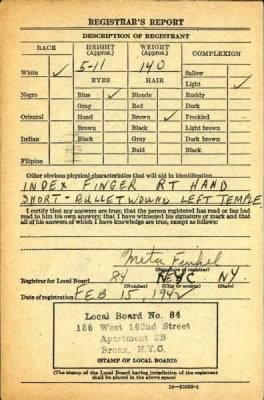 REGISTRAR'S REPORT
DESCRIPTION OF REGISTRANT
RACE HEIGHT (Approx.) WEIGHT (Approx.) COMPLEXION
5-11 140
White ✓ Sallow
EYES HAIR Light ✓
Negro Blue ✓ Blonde Ruddy
Gray Red Dark
Oriental Hazel Brown ✓ Freckled
Brown Black Light brown
Indian Black Gray Dark brown
Bald Black
Filipino
Other obvious physical characteristics that will aid in identification
INDEX FINGER RT HAND
SHORT - BULLET WOUND LEFT TEMPLE
I certify that my answers are true; that the person registered has read or has had
read to him his own answers; that I have witnessed his signature or mark and that
all of his answers of which I have knowledge are true, except as follows:
(Signature of registrar)
Registrar for Local Board 84 NYC NY.
(Number) (City or county) (State)
Date of registration FEB 15, 1942
Local Board No. 84
Apartment 2B
Bronx, N.Y.C.
(STAMP OF LOCAL BOARD)
(The stamp of the Local Board having jurisdiction of the registrant
shall be placed in the above space)